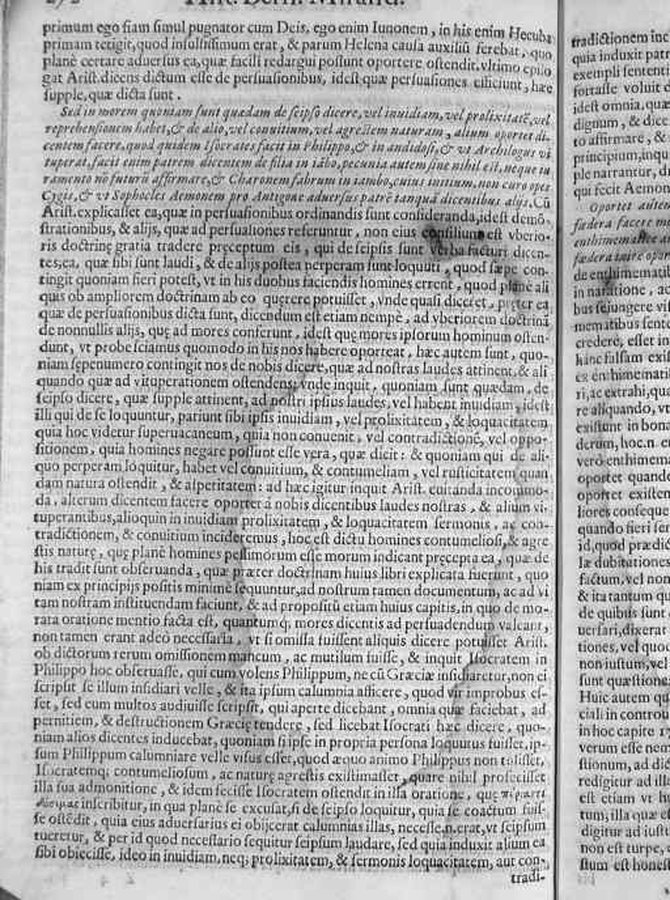 primum ego siam simul pugnator cum Deis, ego enim Iunonem, in his enim Hecuba
primam tetigit, quod insulsissimum erat, & parum Helena causa auxiliū ferebat, quo
planè certare aduersus ea, quæ facili redargui possunt oportere ostendit. vltimo epilo
gat Arist. dicens dictum esse de persuasionibus, idest quæ persuasiones efficiunt, hæc
supple, quæ dicta sunt.
Sed in morem quoniam sunt quædam de seipso dicere, vel inuidiam, vel prolixitatē, vel
reprehensionem habet, & de alio, vel conuitium, vel agrestem naturam, alium oportet di-
centem facere, quod quidem Isocrates facit in Philippo, & in andidosi, & vt Archilogus vi
tuperat, facit enim patrem dicentem de filia in iābo, pecunia autem sine nihil est, neque iu
ramento nō futurū affirmare, & Charonem fabrum in iambo, cuius initium, non curo opes
Cygis, & vt Sophocles Aemonem pro Antigone aduersus patrē tanquā dicentibus alijs. Cū
Arist. explicasset ea, quæ in persuasionibus ordinandis sunt consideranda, idest demō-
strationibus, & alijs, quæ ad persuasiones referuntur, non eius consilium est vberio-
ris doctrinę gratia tradere pręceptum eis, qui de seipsis sunt verba facturi dicen-
tes, ea, quæ sibi sunt laudi, & de alijs postea perperam sunt loquuti, quod sæpe con-
tingit quoniam fieri potest, vt in his duobus faciendis homines errent, quod planè ali
quis ob ampliorem doctrinam ab eo quęrere potuisset, vnde quasi diceret, pręter ea
quæ de persuasionibus dicta sunt, dicendum est etiam nempè, ad vberiorem doctrinā
de nonnullis alijs, quę ad mores conferunt, idest quę mores ipsorum hominum osten-
dunt, vt probe sciamus quomodo in his nos habere oporteat, hæc autem sunt, quo-
niam sępenumero contingit nos de nobis dicere, quæ ad nostras laudes attinent, & ali
quando quæ ad vituperationem ostendens, vnde inquit, quoniam sunt quædam, de
seipso dicere, quæ supple attinent, ad nostri ipsius laudes, vel habent inuidiam, idest
illi qui de se loquuntur, pariunt sibi ipsis inuidiam, vel prolixitatem, & loquacitatem
quia hoc videtur superuacaneum, quia non conuenit, vel contradictionē, vel oppo-
sitionem, quia homines negare possunt esse vera, quæ dicit: & quoniam qui de ali-
quo perperam loquitur, habet vel conuitium, & contumeliam, vel rusticitatem quan
dam natura ostendit, & asperitatem: ad hæc igitur inquit Arist. euitanda incommo-
da, alterum dicentem facere oporterā nobis dicentibus laudes nostras, & alium vi-
tuperantibus, alioquin in inuidiam prolixitatem, & loquacitatem sermonis, ac con-
tradictionem, & conuitium incideremus, hoc est dictu homines contumeliosi, & agre
stis naturę, quę planè homines pessimorum esse morum indicant pręcepta ea, quæ de
his tradit sunt obseruanda, quæ præter doctrinam huius libri explicata fuerunt, quo
niam ex principijs positis minimè sequuntur, ad nostrum tamen documentum, ac ad vi
tam nostram instituendam faciunt, & ad propositū etiam huius capitis, in quo de mo-
rata oratione mentio facta est, quantumq; mores dicentis ad persuadendum valeant,
non tamen erant adeò necessaria, vt si omissa fuissent aliquis dicere potuisset Arist.
ob dictorum rerum omissionem mancum, ac mutilum fuisse, & inquit Isocratem in
Philippo hoc obseruasse, qui cum volens Philippum, ne cū Græciæ insidiaretur, non ei
scripsit se illum insidiari velle, & ita ipsum calumnia afficere, quod vir improbus es-
set, sed eum multos audiuisse scripsit, qui aperte dicebant, omnia quæ faciebat, ad
pernitiem, & destructionem Gręcię tendere, sed licebat Isocrati hæc dicere, quo-
niam alios dicentes inducebat, quoniam si ipse in propria persona loquutus fuisset, ip-
sum Philippum calumniare velle visus esset, quod æquo animo Philippus non tulisset,
Isocratemq; contumeliosum, ac naturę agrestis existimasset, quare nihil profecisset
illa sua admonitione, & idem fecisse Isocratem ostendit in illa oratione, quę
inscribitur, in qua planè se excusat, si de seipso loquitur, quia se coactum fuis-
se ostēdit, quia eius aduersarius ei obijcerat calumnias illas, necesse. n. erat, vt seipsum
tueretur, & per id quod necessario sequitur seipsum laudare, sed quia induxit alium ea
sibi obiecisse, ideo in inuidiam, neq; prolixitatem, & sermonis loquacitatem, aut con-
tradi-
tradictionem inc
quia induxit patr
exempli sententi
fortasse voluit d
idest omnia, qua
dignum, & dice
to affirmare, &
principium, inqu
ple narrantur, di
qui fecit Aemon
Oportet autem
fædera facere m
enthimematice o
fædera inire opor
de enthimemati
in narratione, ac
bus seiungere vis
mematibus senten
credere, esset in
hanc falsam exis
ex enthimematib
ri, ac extrahi, qua
re aliquando, vt
existunt in bona
derum, hoc. n. er
verò enthimema
oportet quando
oportet existen
liores conseque
quando fieri ser
id, quod prædic
Iæ dubitationes
factum, vel non
& ita tantum qu
de quibus sunt a
uersari, dixerat
tiones, vel quoc
non iustum, vel
sunt quæstiones
Huic autem qu
ciali in controu
in hoc capite 17
verum esse nem
stionum, ad dic
redigitur ad illa
est etiam vt hu
tum, illa quæ es
digitur ad iusti
non est turpe, c
stum est honest